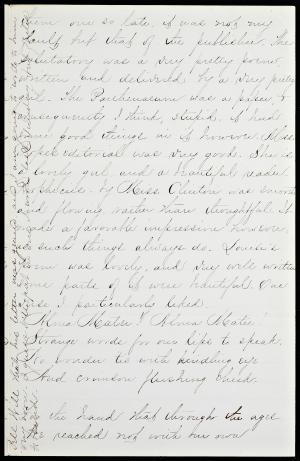 them one so late, it was not my
fault but that of the publisher. The
Salutatory was a very pretty poem,
written and delivered, by a very pretty
girl. The Parthenaeum was a paper, &
consequently I think, stupid. It had
some good things in it however. Miss
editorial was very good. She is
a lovely girl and a beautiful reader
by Miss Clinton was smooth
and flowing rather than thoughtful. It
made a favorable impression however,
as such things always do. Louise's
poem was lovely, and very well written
some parts of it were beautiful. One
verse I particularly liked.
"Alma Mater! Alma Mater!
Strange words for our lips to speak.
No wonder tis with kindling eye
And crimson flushing cheek.
the hand that through the ages
has reached not with her now
Will
letter was
and